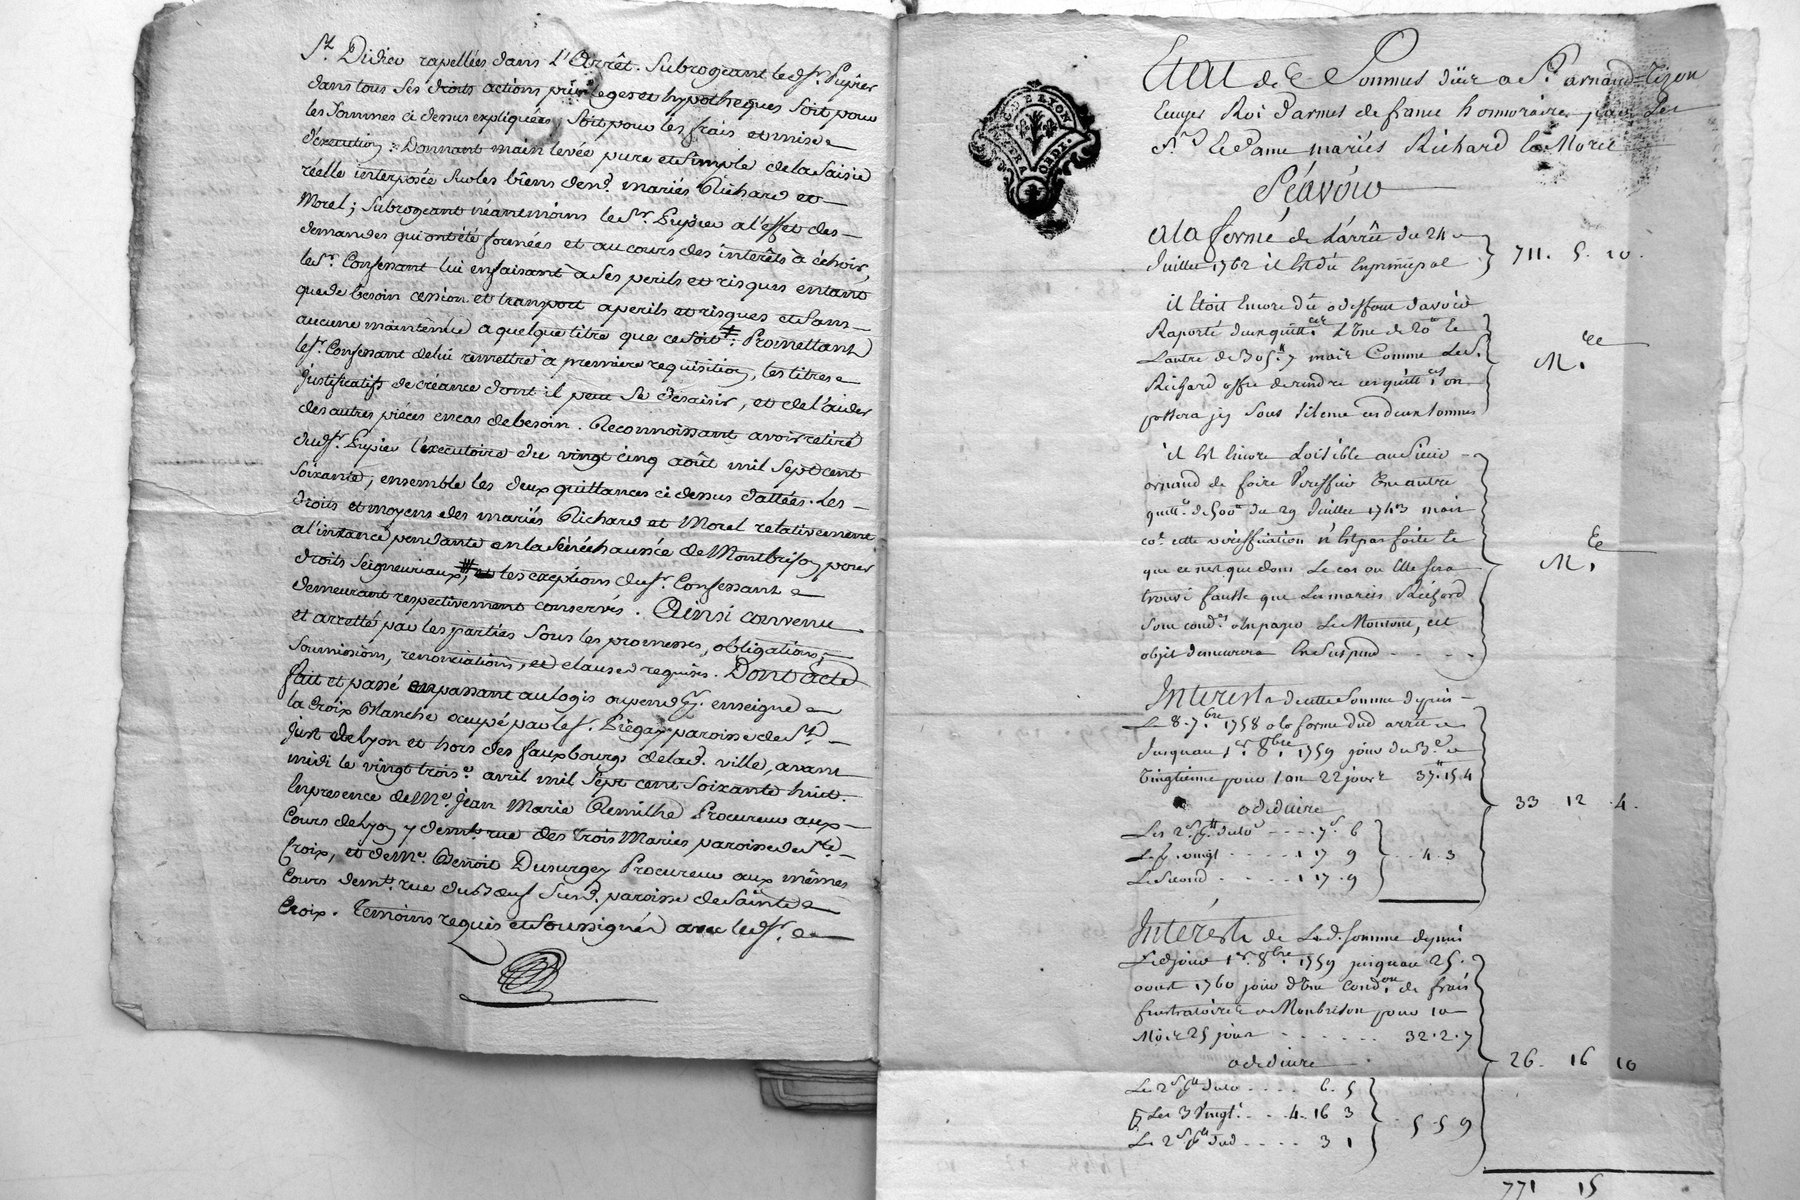 St. Didier rapellées dans l'Arrêt. Subrogeant le dsr. Pupier
dans tous ses droits actions privileges et hypotheques soit pour
les sommes ci dessus expliquées soit pour les frais et mise
d'execution. Donnant main levée pure et simple de la saisie
réelle interposée sur les biens desd. mariés Richard et
Morel; Subrogeant néantmoins le Sr. Pupier a l'effet des
demandes qui ont été formées et au cours des interêts à échoir,
le Sr. Confessant lui en faisant à ses perils et risques entant
que de besoin cession et transport a perils et risques et sans
aucune maintenüe a quelque titre que ce soit. Promettant
le Sr. Confessant de lui remettre à premiere requisition, les titres
justificatifs de créance dont il peut se désaisir, et de l'aider
des autres pièces en cas de besoin. Reconnoissant avoir retiré
dudsr. Pupier l'executoire du vingt cinq août mil sept cent
soixante, ensemble les deux quittances ci dessus dattées. Les
droits et moyens des mariés Richard et Morel relativement
a l'instance pendante en la Sénéchaussée de Montbrison pour
droits seigneuriaux, les exceptions du Sr. Confessant
demeurant respectivement conservés. Ainsi convenu
et arretté par les parties sous les promesses, obligations,
soumissions, renonciations, et clauses requises. Dont Acte
fait et passé en passant au logis ou pend pr. enseigne
la Croix Blanche occupé par le Sr. Piégay paroisse de St.
Just de Lyon et hors des fauxbourgs de lad. ville, avant
midi le vingt troise. avril mil sept cent soixante huit.
En presence de Me. Jean Marie Remilhe Procureur aux
Cours de Lyon y demt. rue des Trois Maries paroisse de Ste.
Croix, et de Me. Benoit Dusurgey Procureur aux mêmes
Cours demt. rue du Bœuf susd. paroisse de Sainte
Croix. Temoins requis et soussignés avec le dsr.
GEN. DE LYON
Etat de Sommes düe a Sr. arnaud Tizon
Ecuyer Roi d'armes de france honnoraire par les
Sr. et Dame mariés Richard et Morel
Sçavoir
a la forme de l'arrêt du 24
Juillet 1762 il est dû en principal 711. 5. 10.
il étoit encore dû a deffaut d'avoir
Raporté deux quittces. l'une de 20 et
L'autre de 305. 7 mais Comme le S.
Richard offre de rendre ces quittces. on
passera icy sous silence ces deux sommes
M.
il est encore loisible au Sieur
arnaud de faire veriffier une autre
quitt. de 500 du 29 Juillet 1743 mais
co. cette veriffication n'est pas faite et
que ce n'est que dans le cas ou elle sera
trouvé fausse que les mariés Richard
sont cond.és a en payer le Montant, cet
objet demeurera en suspend
M.
Interest de cette somme depuis
Le 8. 7bre 1758 a la forme dud arrêt
jusquau 1er. 8bre. 1759 jour du 3e.
vingtieme pour 1 an 22 jours 37. 15. 4
a deduire
Les 2 s. p. du 10e 7. 6
Le p. vingt 1 17 9
Le Second 1 17. 9
4. 3
33 12 4.
Interest de Lad. somme depuis
Ledjour 1er. 8bre. 1759 jusquau 25.
aoust 1760 jour d'une condon. de frais
frustratoires a Monbrison pour 10
Mois 25 jours 32. 2. 7
a deduire
Les 2 s. p. du 10 6. 5
Les 3 vingt. 4. 16 3
Les 2 s. p. dud 3 1
5 5 9
26. 16 10
771 15